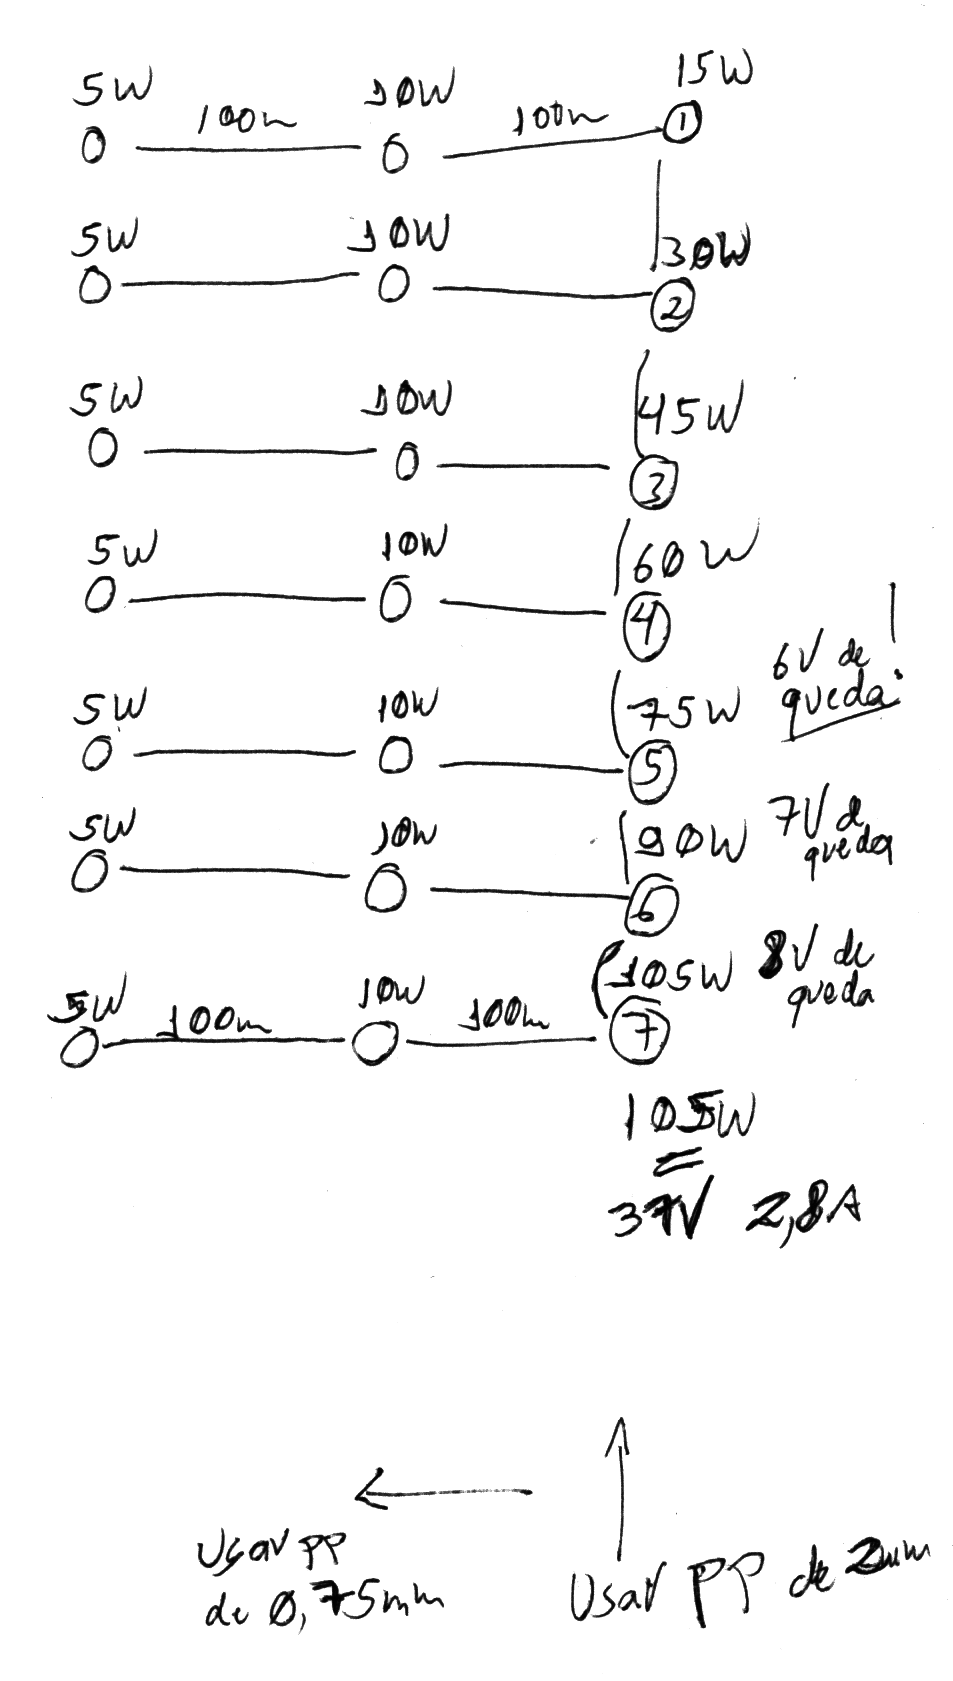 5W 10W 15W
100m 100m
1
5W 10W 30W
2
5W 10W 45W
3
5W 10W 60W
4
6V de
queda!
5W 10W 75W
5
5W 10W 90W 7V de
queda
6
5W 10W 105W 8V de
queda
100m 100m
7
105W
37V 2,8A
Usar PP
de 0,75mm
Usar PP de 2mm